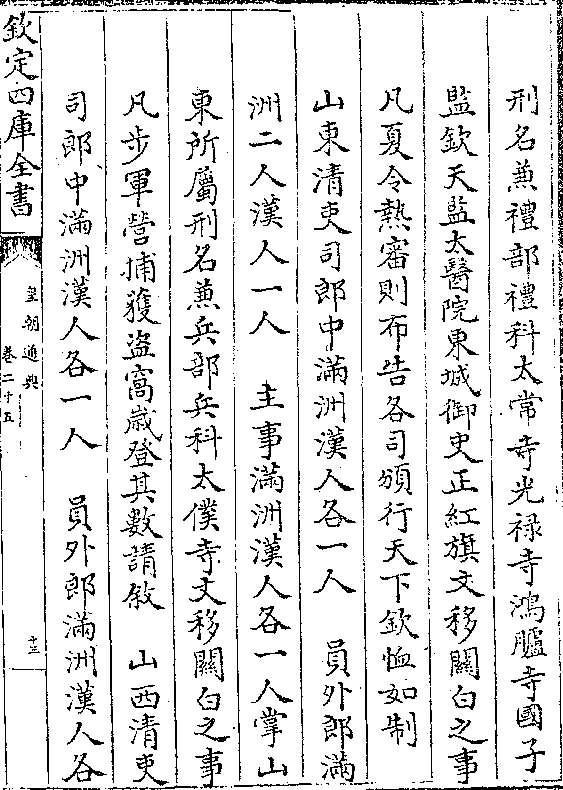 刑名兼禮部禮科太常寺光禄寺鴻臚寺國子
監欽天監太醫院東城御史正紅旗文移關白之事
凡夏令熱審則布告各司頒行天下欽恤如制
山東清吏司郎中滿洲漢人各一人　員外郎滿
洲二人漢人一人　主事滿洲漢人各一人掌山
東所屬刑名兼兵部兵科太僕寺文移關白之事
凡步軍營捕獲盜窩歲登其數請敘　山西清吏
司郎中滿洲漢人各一人　員外郎滿洲漢人各
欽定四庫全書
皇朝通典
卷二十五
十三